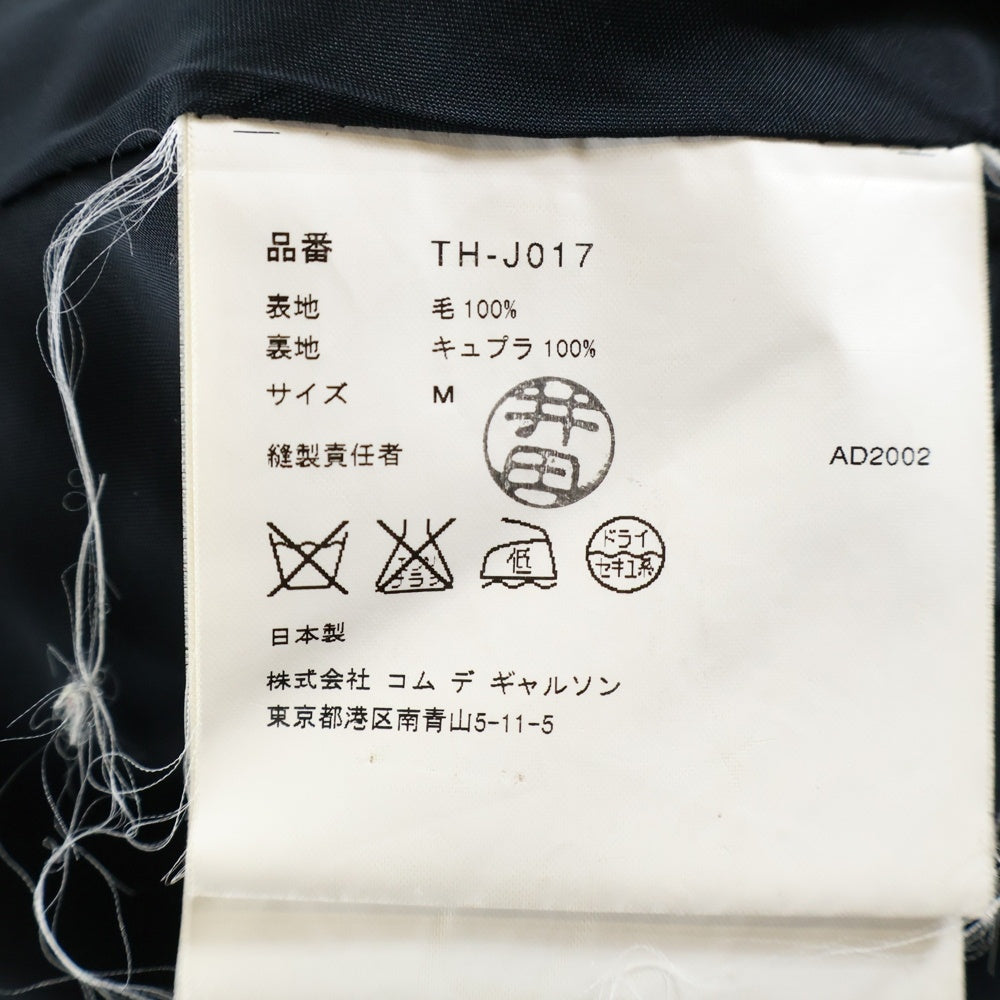 品番 TH-J017
表地 毛 100%
裏地 キュプラ 100%
サイズ M
井田
縫製責任者 AD2002
エンソ
チラシ
低
ドライ
セキユ系
日本製
株式会社 コム デ ギャルソン
東京都港区南青山5-11-5